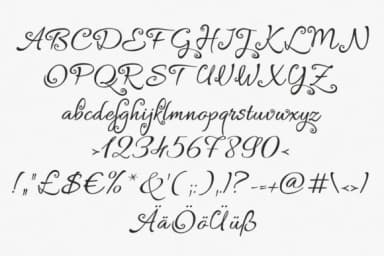 ABCDEFGHIJKLMN
OPQRSTUVWXYZ
abcdefghijklmnopqrstuvwxyz
>1234567890<
!„"£$€%*&'(;:),.)?-=+@#\<>)
ÄäÖöÜüß